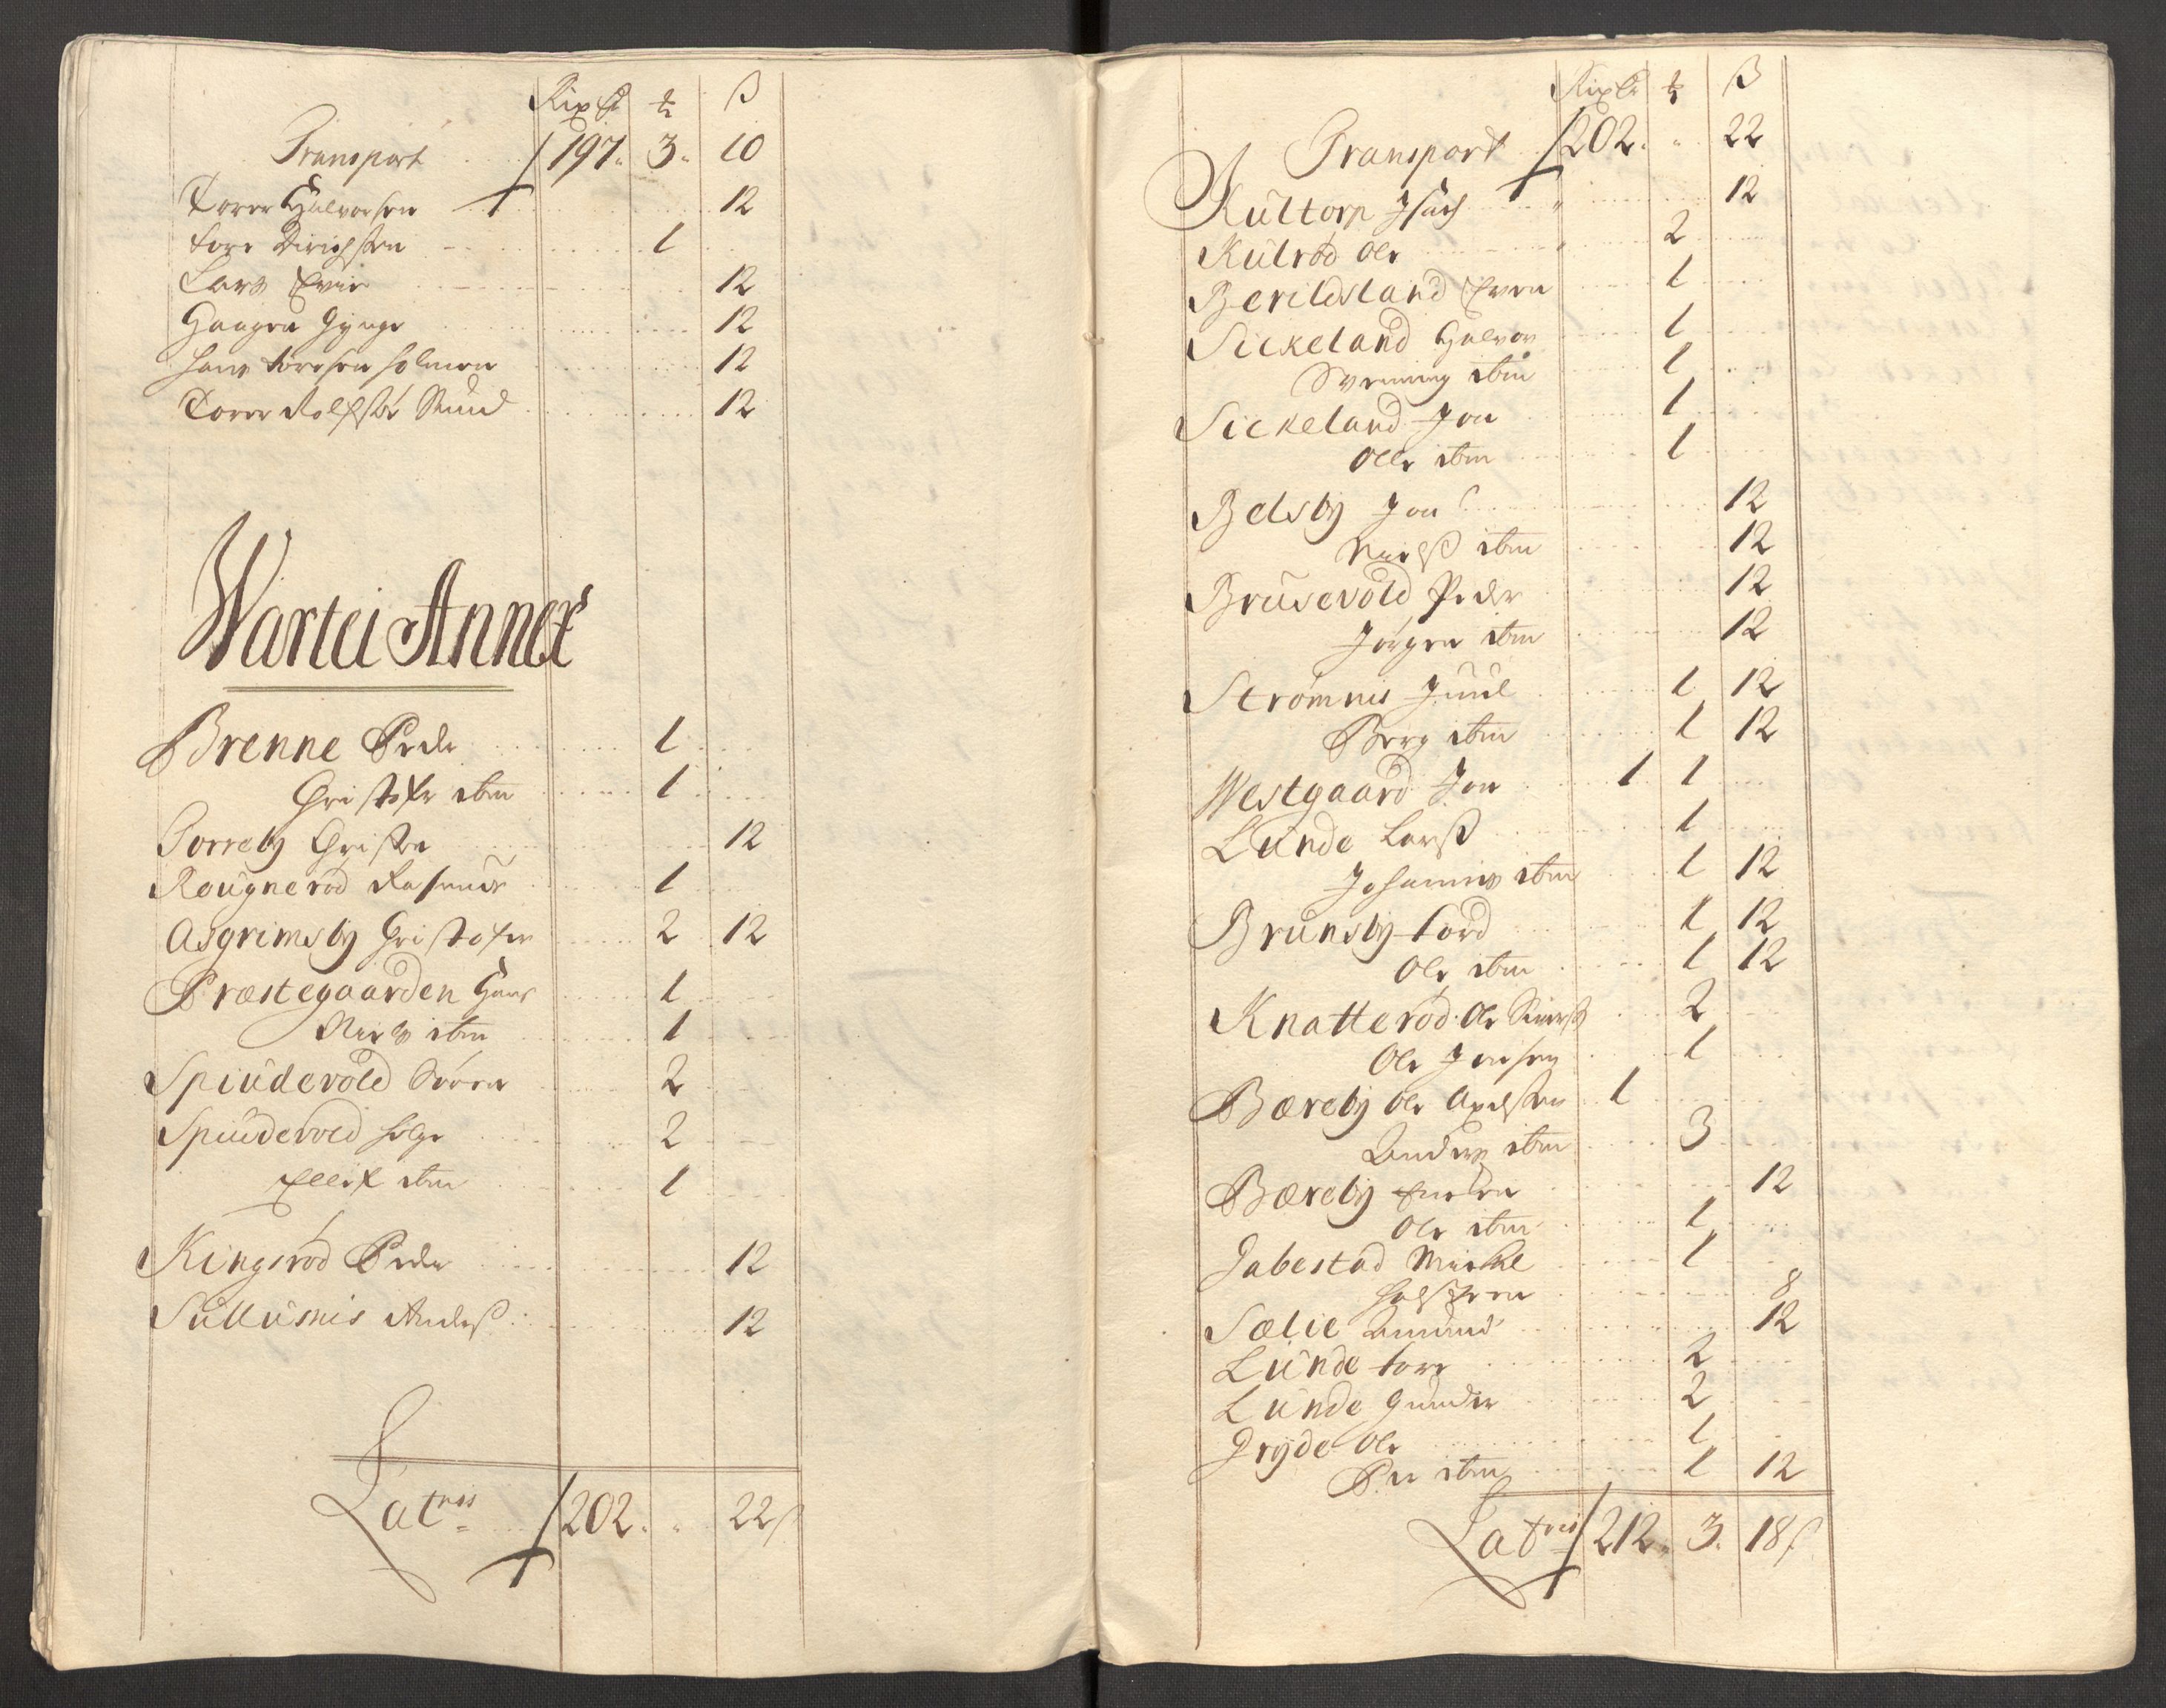 Rixdr ½ ß
Transport 197. 3. 10
Torer Halvorsen 12
Tore Dirichsen 1
Lars 12
Haagen Gynge 12
Hans Toresen Holmen 12
Torer Rolfsør Sund 12
Wartei Annex
Brenne Peder 1
Christofr ibm 1
Torreby Christen 12
Rougnerød Rasmus 1
Asgrimsby Christofer 2 12
Præstegaarden Hans 1
Niels ibm 1
Spiudevold Søren 2
Spiudevold Helge 2
Ellif ibm 1
Kingsrød Peder 12
Sullusnis Anders 12
Latris 202. " 22 ß
Rixdr ½ ß
Transport 202. " 22
Kultorp Isach " 12
Kulrød Ole " 2
Berildsland Even 1
Sickeland Halvor 1
Svenning ibm 1
Sickeland Jon 1
Olle ibm 1
Belsby Jon 12
Nielß ibm 12
Brusevold Peder 12
Jørgen ibm 12
Strømnis Juul 1 12
Borg ibm 1 12
Westgaard Jon 1 1
Lunde Larß 1
Johannis ibm 1 12
Brunsby Tord 1 12
Ole ibm 1 12
Knatterød Ole 2
Ole Jensen 1
Bæreby Ole Axelsen 1
Anders ibm 3
Bæreby 12
Ole ibm 1
Gabestad Mickel 1
Halsteen 8
Sælie Amund 12
Lunde Tore 2
Lunde Gunder 2
Gryde Ole 1
Per ibm 1 12
Latris 212. 3. 18 ß